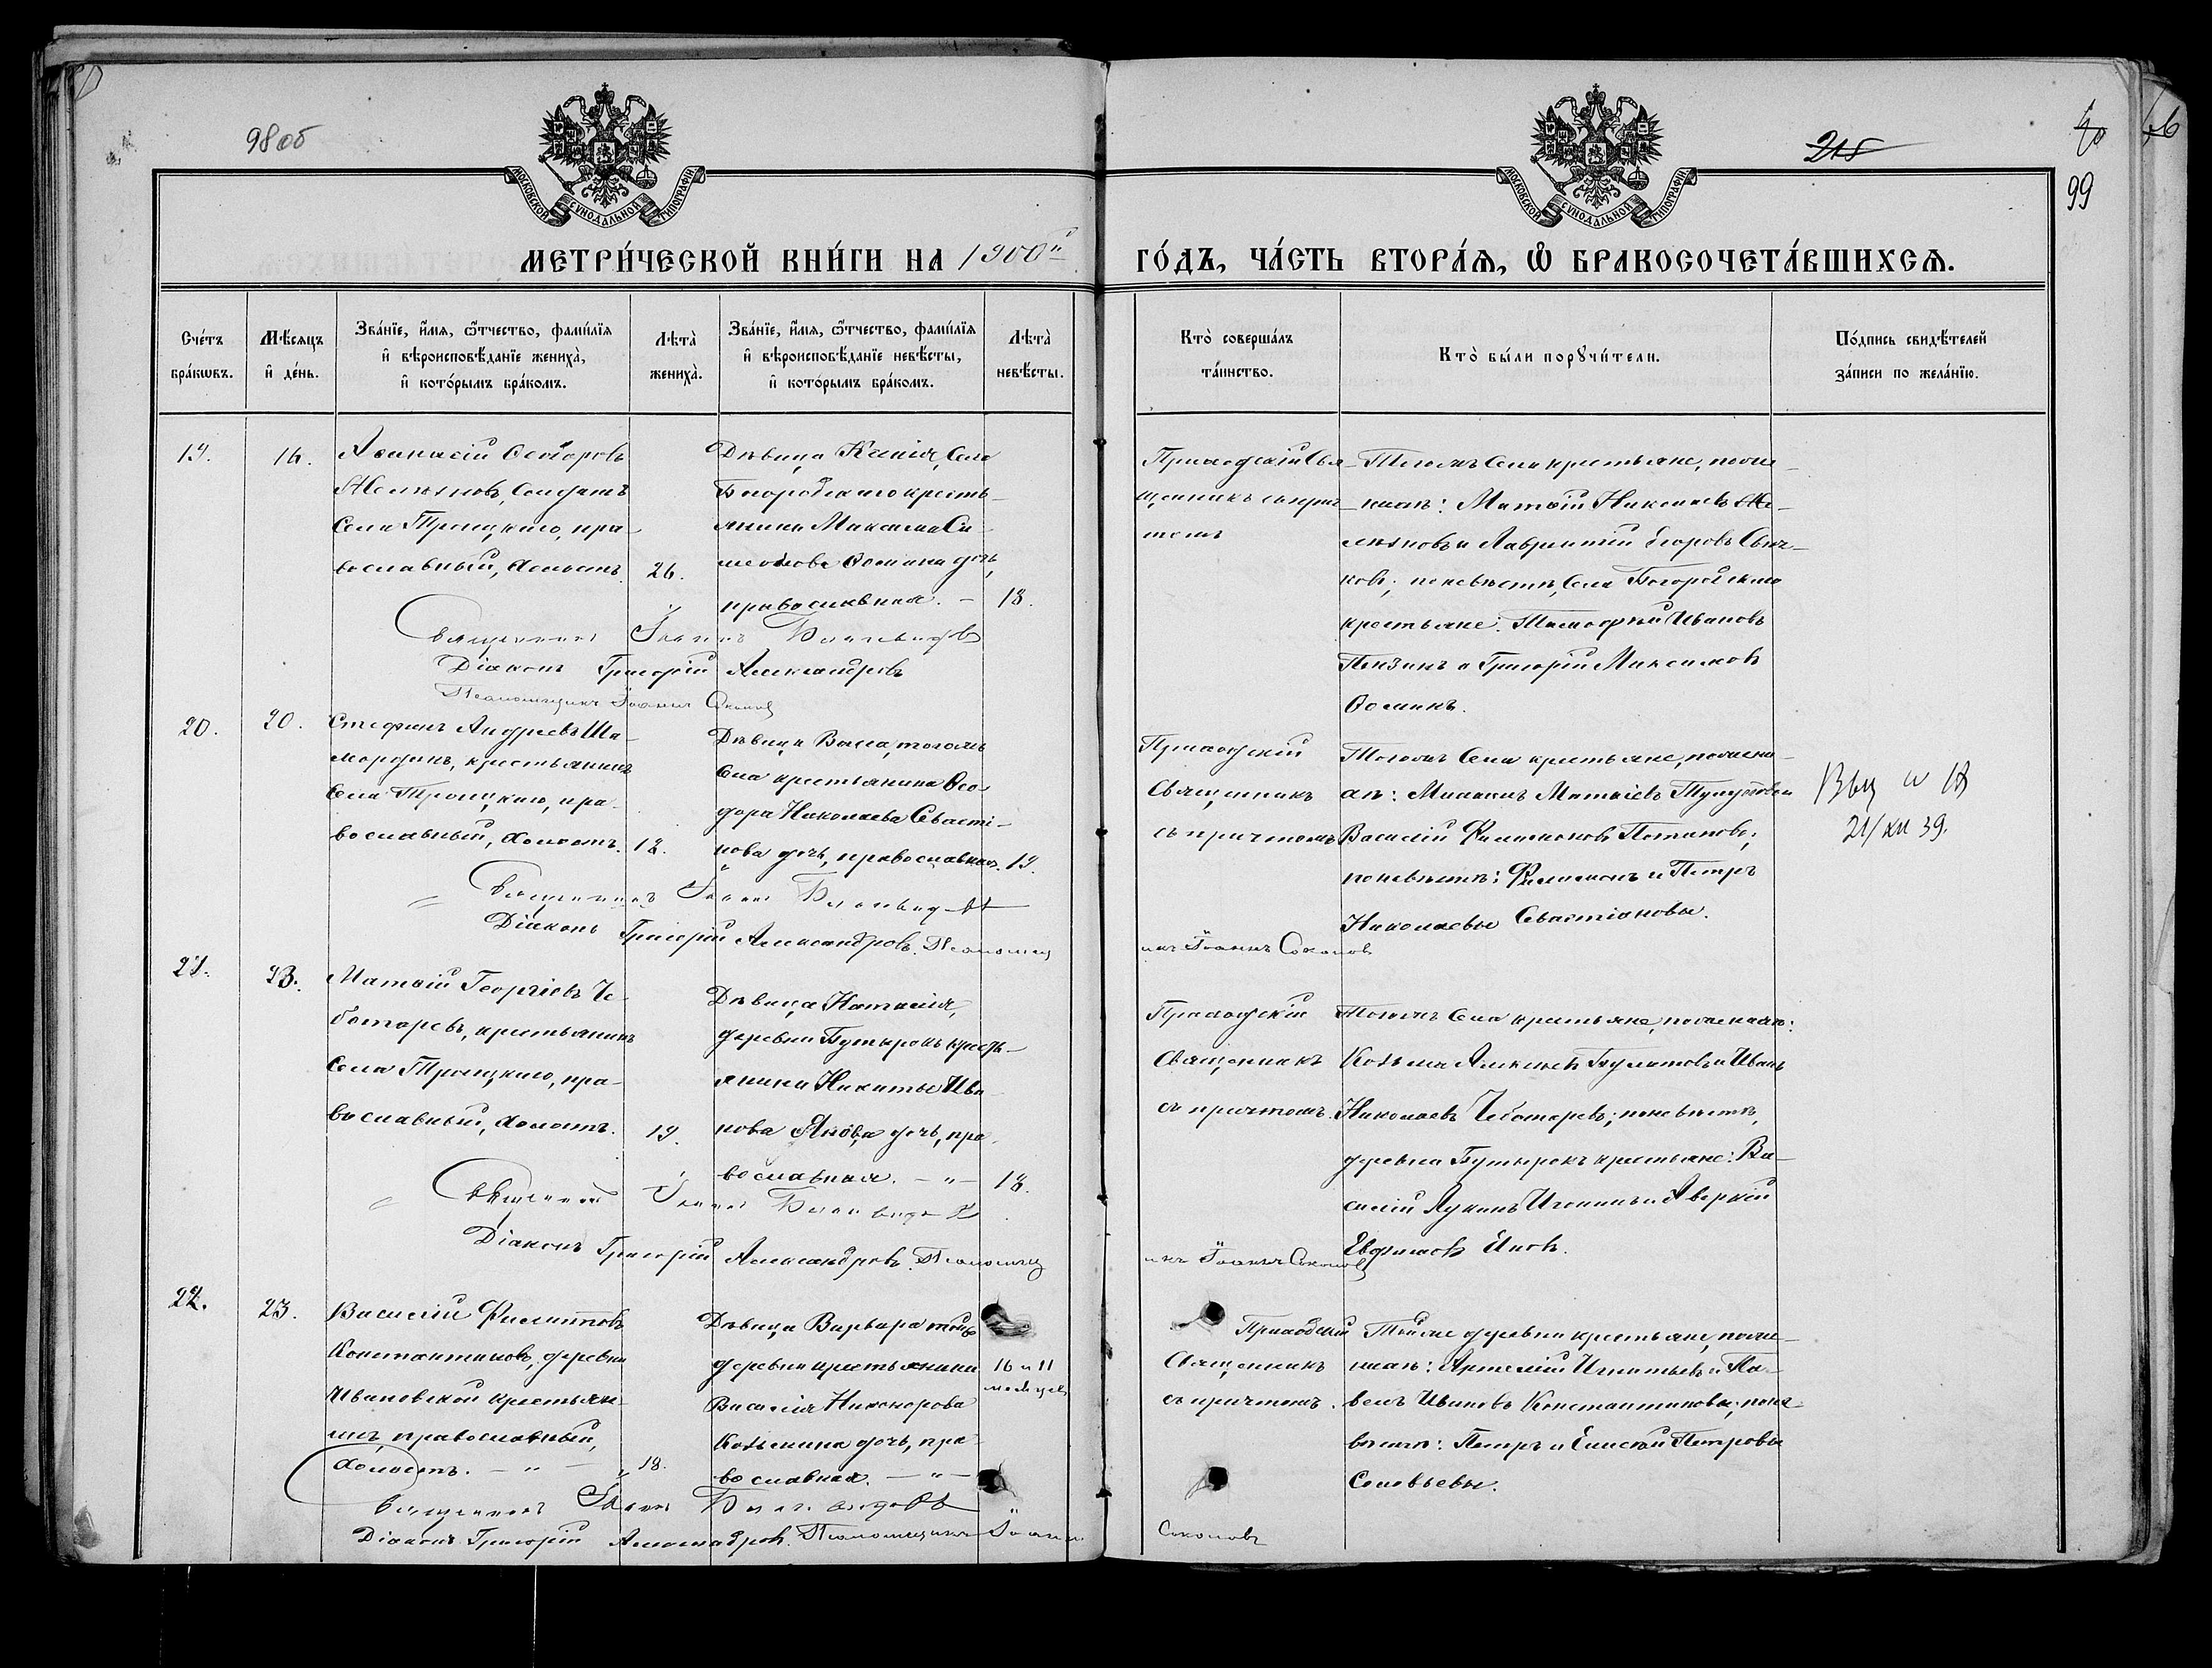 98 об
215
40
99
МОСКОВСКОЙ СѴНОДАЛЬНОЙ ТИПОГРАФІИ
МОСКОВСКОЙ СѴНОДАЛЬНОЙ ТИПОГРАФІИ
МЕТРИ́ЧЕСКОЙ КНИ́ГИ НА 1900й ГО́ДЪ, ЧА́СТЬ ВТОРА́Ѧ, Ѽ БРАКОСОЧЕТА́ВШИХСѦ.
Сче́тъ бра́кѡвъ.
Мѣ́сяцъ и҆ де́нь.
Зва́нїе, и҆́мя, ѻ҆́тчество, фами́лїя
и҆ вѣроисповѣ́данїе жениха̀,
и҆ кото́рымъ бра́комъ.
Лѣта̀ жениха̀.
Зва́нїе, и҆́мя, ѻ҆́тчество, фами́лїя
и҆ вѣроисповѣ́данїе невѣ́сты,
и҆ кото́рымъ бра́комъ.
Лѣта̀ невѣ́сты.
Кто̀ соверша́лъ
та́инство.
Кто̀ бы́ли порꙋчи́тели.
По́дпись свидѣ́телей
за́писи по жела́нїю.
19.
16.
Аѳанасій Ѳедоровъ
Желязновъ, солдатъ
села Троицкаго, пра-
вославный, холостъ.
26.
Дѣвица Ксенія, села
Богородскаго кресть-
янина Максима Си-
меонова Ѳомина дочь,
православная. –
18.
Приходскій Свя-
щенникъ съ прич-
томъ
Тогожъ села крестьяне, по же-
нихѣ: Матѳій Николаевъ Же-
лязновъ и Лаврентій Егоровъ
по невѣстѣ, села Богородскаго
крестьяне: Тимоѳей Ивановъ
Пензинъ и Григорій Максимовъ
Ѳоминъ.
Священникъ Іоаннъ
Діаконъ Григорій Александровъ
Псаломщикъ Іоаннъ Соколовъ
20.
20.
Стефанъ Андреевъ Ша-
мординъ, крестьянинъ
села Троицкаго, пра-
вославный, холостъ.
18.
Дѣвица Васса, тогожъ
села крестьянина Ѳео-
дора Николаева Севасті-
нова дочь, православная.
19.
Приходскій
Священникъ
съ причтомъ
Тогожъ села крестьяне, по жени-
хѣ: Михаилъ Матѳіевъ
Василій Филимоновъ Потаповъ;
по невѣстѣ: Филимонъ и Петръ
Николаевы Севастіановы.
21/XII 39.
Священникъ Іоаннъ
Діаконъ Григорій Александровъ. Псаломщ
икъ Іоаннъ Соколовъ
21.
23.
Матѳій Георгіевъ Че-
ботаревъ, крестьянинъ
села Троицкаго, пра-
вославный, холостъ.
19.
Дѣвица Наталія,
деревни Бутырокъ кресть-
янина Никиты Ива-
нова дочь, пра-
вославная. – " –
18.
Приходскій
Священникъ
съ причтомъ.
Тогожъ села крестьяне, по женихѣ:
Козьма Алексѣевъ Булатовъ и Иванъ
Николаевъ Чеботаревъ; по невѣстѣ,
деревни Бутырокъ крестьяне: Ва-
силій Лукинъ и Аверкій
Евфимовъ
Священникъ Іоаннъ
Діаконъ Григорій Александровъ. Псаломщ
икъ Іоаннъ Соколовъ
22.
23.
Василій Филипповъ
Константиновъ, деревни
Ивановской крестьян-
инъ, православный,
холостъ. – " –
18.
Дѣвица Варвара тойже
деревни крестьянина
Василія Никонорова
Козьмина дочь, пра-
вославная. – " –
16 и 11
мѣсяцев
Приходскій
Священникъ
съ причтомъ.
Тойже деревни крестьяне, по же-
нихѣ: Артемій Игнатьевъ и Па-
велъ Ивановъ Константиновы; по не-
вѣстѣ: Петръ и Елисей Петровы
Соловьевы.
Священникъ Іоаннъ
Діаконъ Григорій Александровъ. Псаломщикъ Іоаннъ
Соколовъ